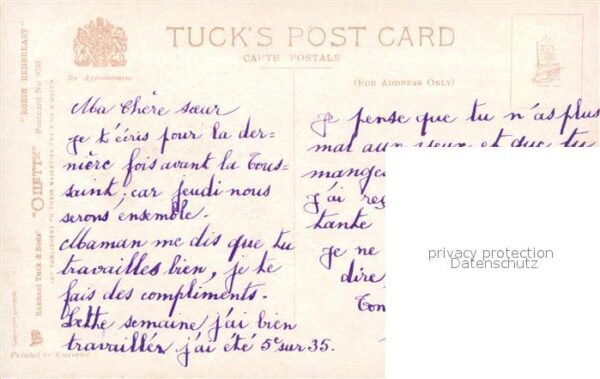 TUCK'S POST CARD
CARTE POSTALE
By Appointment
(FOR ADDRESS ONLY)
"ROBIN REDBREAST"
Postcard No. 9795
"OILETTE"
Raphael Tuck & Sons'
ART PUBLISHERS TO THEIR MAJESTIES THE KING & QUEEN
Printed in England
Ma Chère sœur
je t'écris pour la der-
nière fois avant la Tous-
saint, car jeudi nous
serons ensemble.
Maman me dis que tu
travailles bien, je te
fais des compliments.
Cette semaine j'ai bien
travaillér j'ai été 5e sur 35.
je pense que tu n'as plus
mal aux yeux et que tu
j'ai
tante
je ne
dire,
privacy protection
Datenschutz